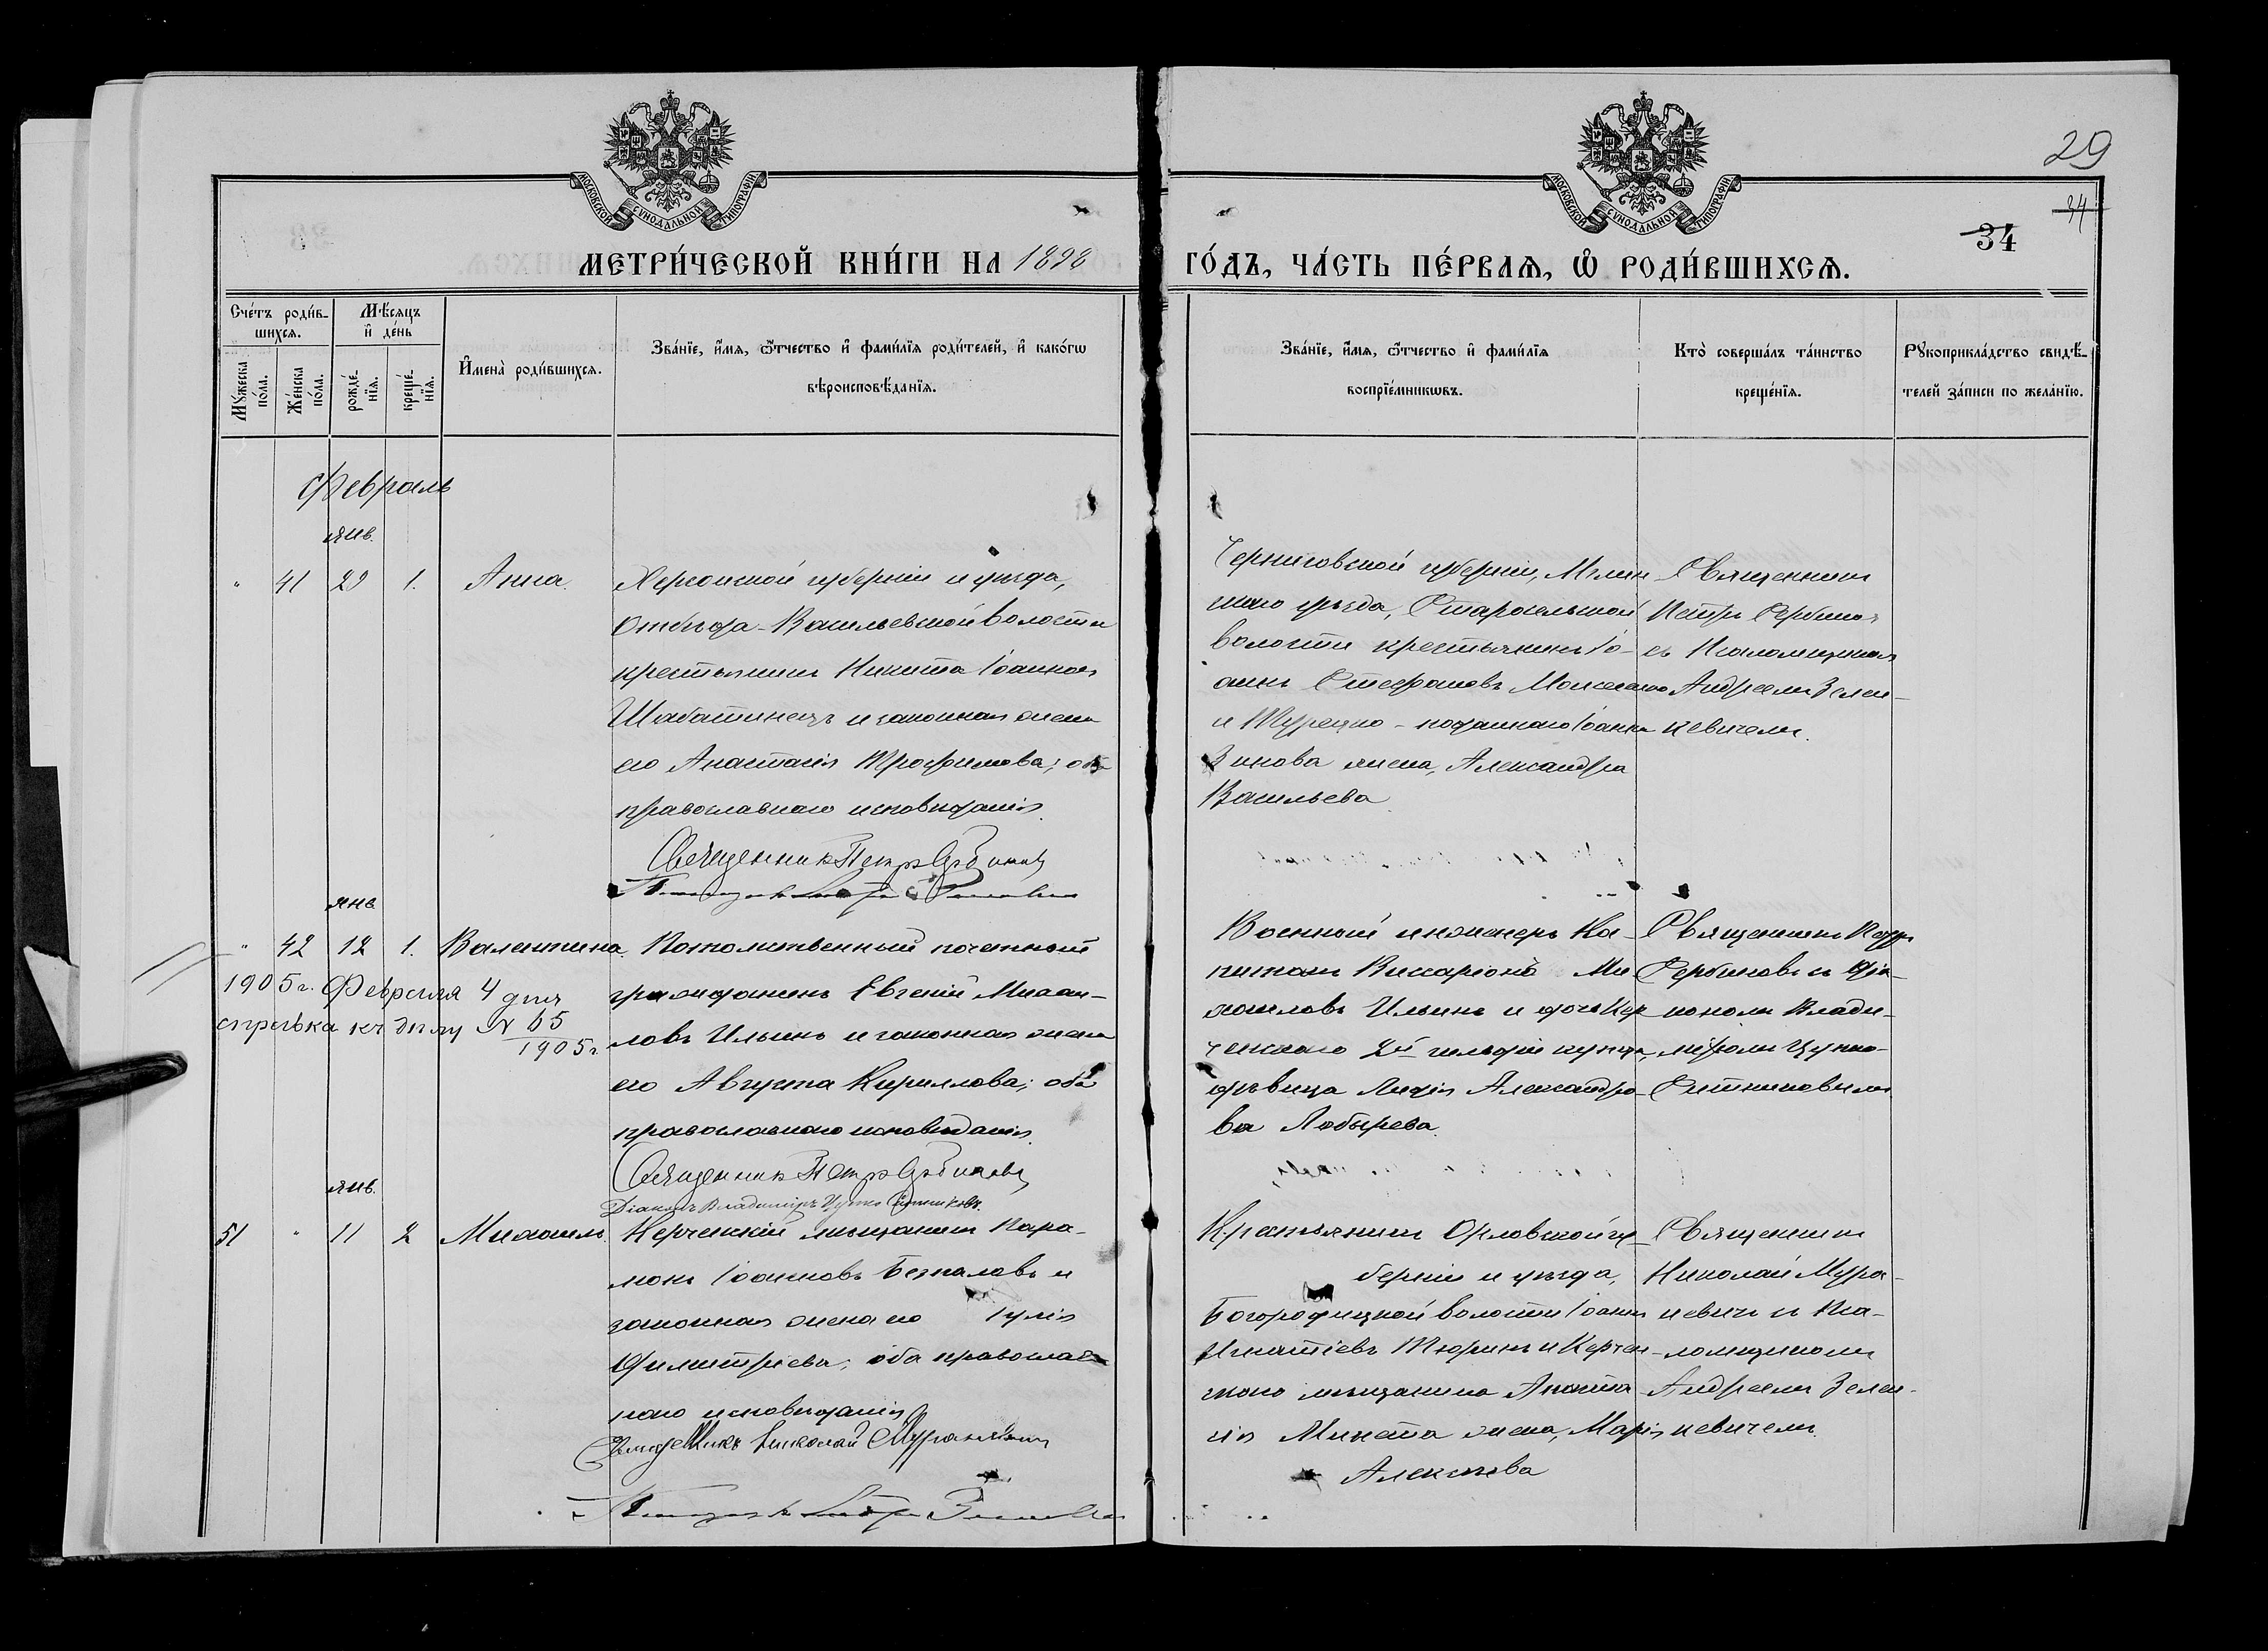 29
34
34
МОСКОВСКОЙ СѴНОДАЛЬНОЙ ТИПОГРАФІИ
МОСКОВСКОЙ СѴНОДАЛЬНОЙ ТИПОГРАФІИ
МЕТРИ́ЧЕСКОЙ КНИ́ГИ НА 1898 ГО́ДЪ, ЧА́СТЬ ПЕ́РВАѦ, Ѿ РОДИ́ВШИХСѦ.
Сче́тъ роди́в-
шихся.
Мѣ́сяцъ
и҆ де́нь
Мꙋ́жеска по́ла.
Же́нска по́ла.
рожде́-нїя.
креще́-нїя.
И҆мена̀ роди́вшихся.
Зва́нїе, и҆́мя, ѻ҆́тчество и҆ фами́лїя роди́телей, и҆ како́гѡ
вѣроисповѣ́данїя.
Зва́нїе, и҆́мя, ѻ҆́тчество и҆ фами́лїя
воспрїе́мникѡвъ.
Кто̀ соверша́лъ та́инство
креще́нїя.
Рꙋкоприкла́дство свидѣ́-
телей за́писи по жела́нїю.
Февраль
янв.
" 41 29 1. Анна.
Херсонской губерніи и уѣзда,
Отбѣдо-Васильевской волости
крестьянинъ Никита Іоанновъ
Шабатинецъ и законная жена
его Анастасія Трофимова; оба
православнаго исповѣданія.
Священникъ Петръ Сербиновъ
Черниговской губерніи, Мглин-
скаго уѣзда, Старосельской
волости крестьянинъ Іо-
аннъ Стефановъ
и Турецко-подданнаго Іоанна
Зинова жена, Александра
Васильева
Священникъ
Петръ Сербиновъ
съ Псаломщикомъ
Андреемъ Зелен-
кевичемъ.
янв
" 42 12 1. Валентина.
1905 г. Февраля 4 дня
справка къ дѣлу № 65
1905 г.
Потомственный почетный
гражданинъ Евгеній Михаи-
ловъ Ильинъ и законная жена
его Августа Кириллова; оба
православнаго исповѣданія.
Священникъ Петръ Сербиновъ
Діаконъ Владиміръ Цупко Ситниковъ.
Военный инженеръ Ка-
питанъ Виссаріонъ Ми-
хаиловъ Ильинъ и дочь Кер-
ченскаго 2й гильдіи купца,
дѣвица Лидія Александро-
ва Лобырева.
Священникъ Петръ
Сербиновъ съ Діа-
кономъ Влади-
міромъ Цупко-
Ситниковымъ
янв.
51 " 11 2 Михаилъ.
Керченскій мѣщанинъ Пара-
монъ Іоанновъ Безпаловъ и
законная жена его Іулія
Димитріева; оба православ-
наго исповѣданія
Священникъ Николай Мураневичъ
Крестьянинъ Орловской гу-
берніи и уѣзда,
Богородицкой волости Іоаннъ
Игнатіевъ Тюринъ и Керчен-
скаго мѣщанина Анаста-
сія жена, Марія
Алексѣева
Священникъ
Николай Мура-
невичъ съ Пса-
ломщикомъ
Андреемъ Зелен-
кевичемъ.